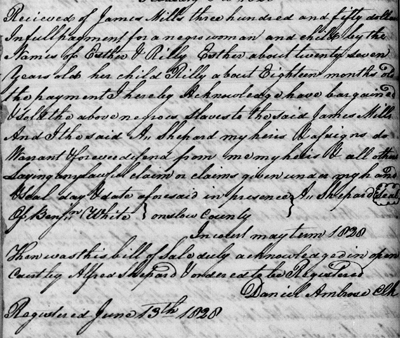 Recieved of James Mills three hundred and fifty dollars
In full payment for a negro woman and child by the
Names of Esther & Rilly Esther about twenty seven
years old her child Rilly about Eighteen months old
the payment I hereby acknowledge have bargained
& sold the above negroes slaves to the said James Mills
And I the said A. Shepard my heirs & assigns do
Warrant & forever defend from me my heirs & all others
Laying any lawful claim or claims given under my hand
& seal day & date aforesaid in presence A. Shepard Seal
Of Benjn. White Onslow County
In court may term 1828
Then was this bill of Sale duly acknowledged in open
Court by Alfred Shepard & ordered to be Registered
Daniel Ambrose Clk
Registered June 13th 1828